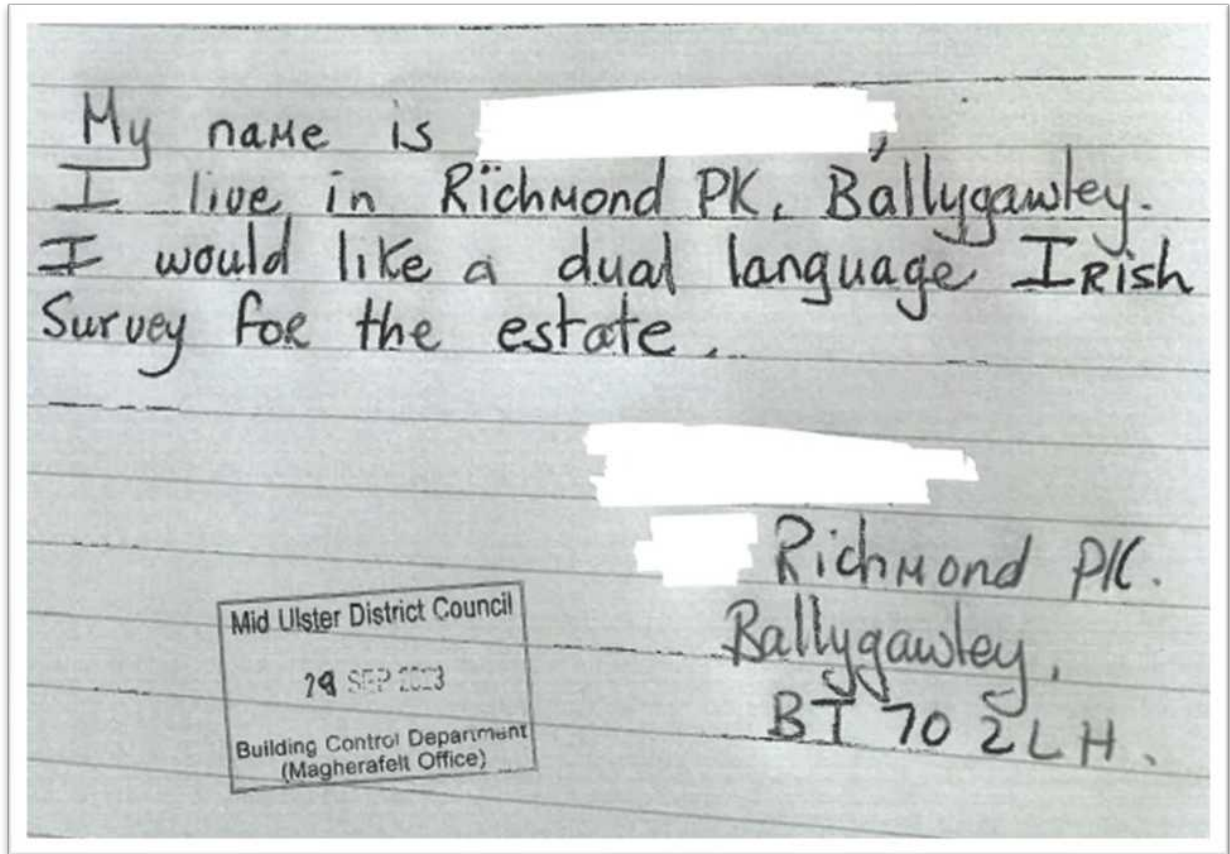 My name is ,
I live in Richmond PK. Ballygawley.
I would like a dual language IRish
Survey for the estate.
Richmond PK.
Ballygawley,
BT 70 2LH.
Mid Ulster District Council
SEP 2023
Building Control Department
(Magherafelt Office)